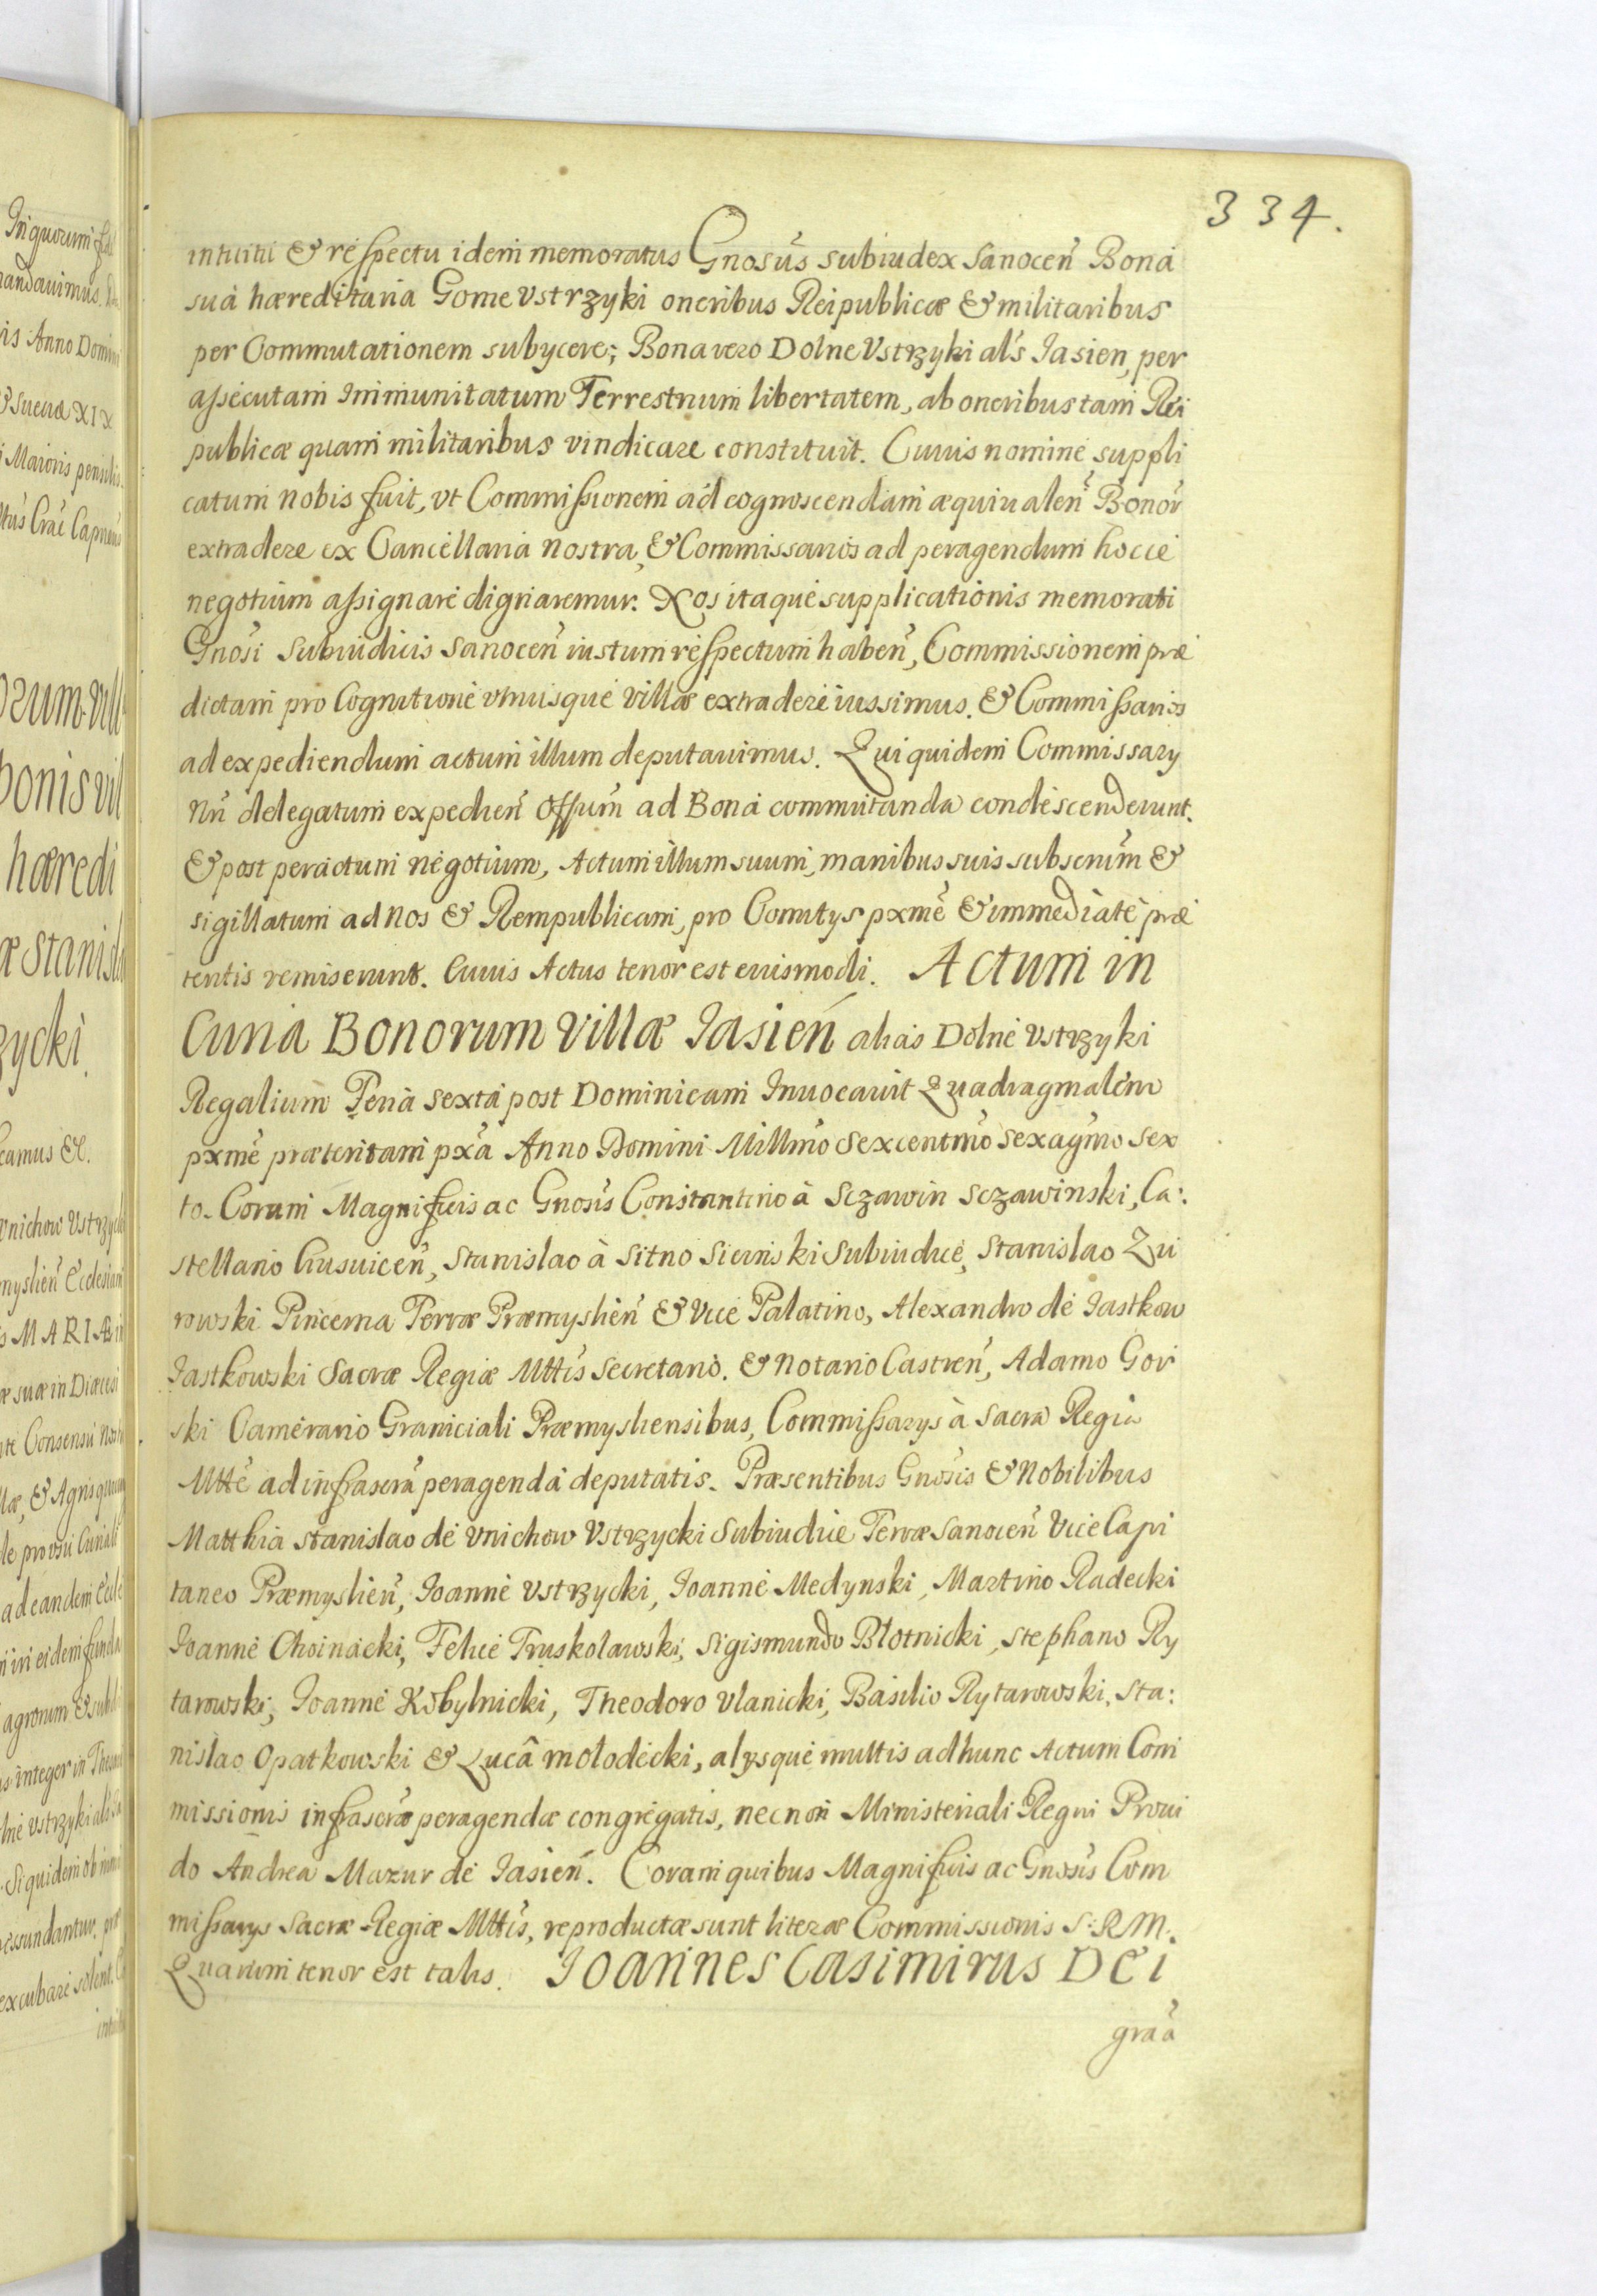 334.
intuitu & respectu idem memoratus Gnosus subiudex Sanocen Bona
sua hæreditaria Gorne Vstrzyki oneribus Reipublicæ & militaribus
per Commutationem subycere; Bona vero Dolne Vstrzyki als Iasien, per
assecutam Immunitatum Terrestrium libertatem, ab oneribus tam Rei
publicæ quam militaribus vindicare constituit. Cuius nomine suppli
catum nobis fuit, vt Commissionem ad cognoscendam æquiualen Bonor
extradere ex Cancellaria nostra, & Commissarios ad peragendum hocce
negotium assignare dignaremur. Nos itaque supplicationis memorati
Gnosi Subiudicis Sanocen iustum respectum haben, Commissionem præ
dictam pro Cognitione vtriusque villæ extradere iussimus. & Commissarios
ad expediendum actum illum deputauimus. Qui quidem Commissary
Nri delegatum expedien Offum ad Bona commutanda condescenderunt.
& post peractum negotium, Actum illum suum, manibus suis subscrim &
sigillatum ad Nos & Rempublicam, pro Comitys pxme & immediate præ
teritis remiserunt. Cuius Actus tenor est eiusmodi. Actum in
Curia Bonorum Villæ Iasień alias Dolne Vstrzyki
Regalium Feria sexta post Dominicam Inuocauit Quadragmalem
pxme præteritam pxa Anno Domini Millmo Sexcentmo Sexagmo Sex
to. Coram Magnificis ac Gnosis Constantino à Sczawin Sczawinski, Ca:
stellano Jnsuicen, Stanislao à Sitno Siemiski Subiudice, Stanislao Zu
rowski Pincerna Terræ Præmyslien & Vice Palatino, Alexandro de Iastkow
Iastkowski Sacræ Regiæ Mttis Secretario. & Notario Castren, Adamo Gor
ski Camerario Graniciali Præmysliensibus, Commissarys à Sacra Regia
Mtte ad infrascra peragenda deputatis. Præsentibus Gnosis & Nobilibus
Matthia Stanislao de Vnichow Vstrzycki Subiudice Terræ Sanocen Vice Capi
taneo Præmyslien, Ioanne Vstrzycki, Ioanne Medynski, Martino Radecki
Ioanne Choinacki, Felice Truskolawski, Sigismundo Błotnicki, Stephano Ry
tarowski, Ioanne Kobylnicki, Theodoro Vlanicki, Basilio Rytarowski, Sta:
nislao Opatkowski & Lucâ Molodecki, alysque multis ad hunc Actum Com
missionis infrascræ peragendæ congregatis, necnon Ministeriali Regni Proui
do Andrea Mazur de Iasień. Coram quibus Magnificis ac Gnosis Com
missarys Sacræ Regiæ Mttis, reproductæ sunt literæ Commissionis S: R M.
Quarum tenor est talis. Ioannes Casimirus Dei
graa